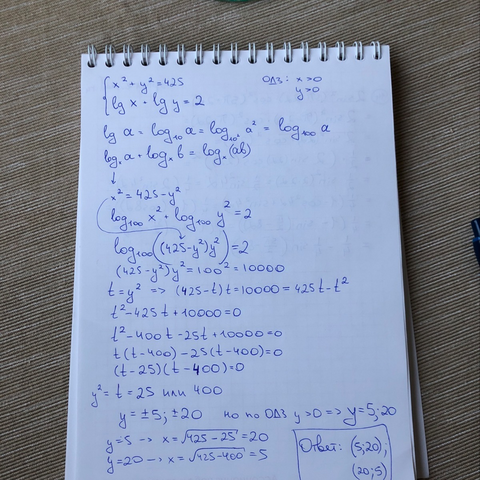 { x² + y² = 425 ОДЗ: x>0
{ lg x + lg y = 2 y>0
lg a = log₁₀ a = log₁₀² a² = log₁₀₀ a
logₓ a + logₓ b = logₓ (ab)
↓
x² = 425 - y²
log₁₀₀ x² + log₁₀₀ y² = 2
log₁₀₀ ((425-y²)y²) = 2
(425-y²)y² = 100² = 10000
t = y² => (425-t)t = 10000 = 425t - t²
t² - 425t + 10000 = 0
t² - 400t - 25t + 10000 = 0
t(t-400) - 25(t-400) = 0
(t-25)(t-400) = 0
y² = t = 25 или 400
y = ±5; ±20 но по ОДЗ y>0 => y = 5; 20
y = 5 → x = √425-25 = 20
y = 20 → x = √425-400 = 5
Ответ: (5;20);
(20;5)